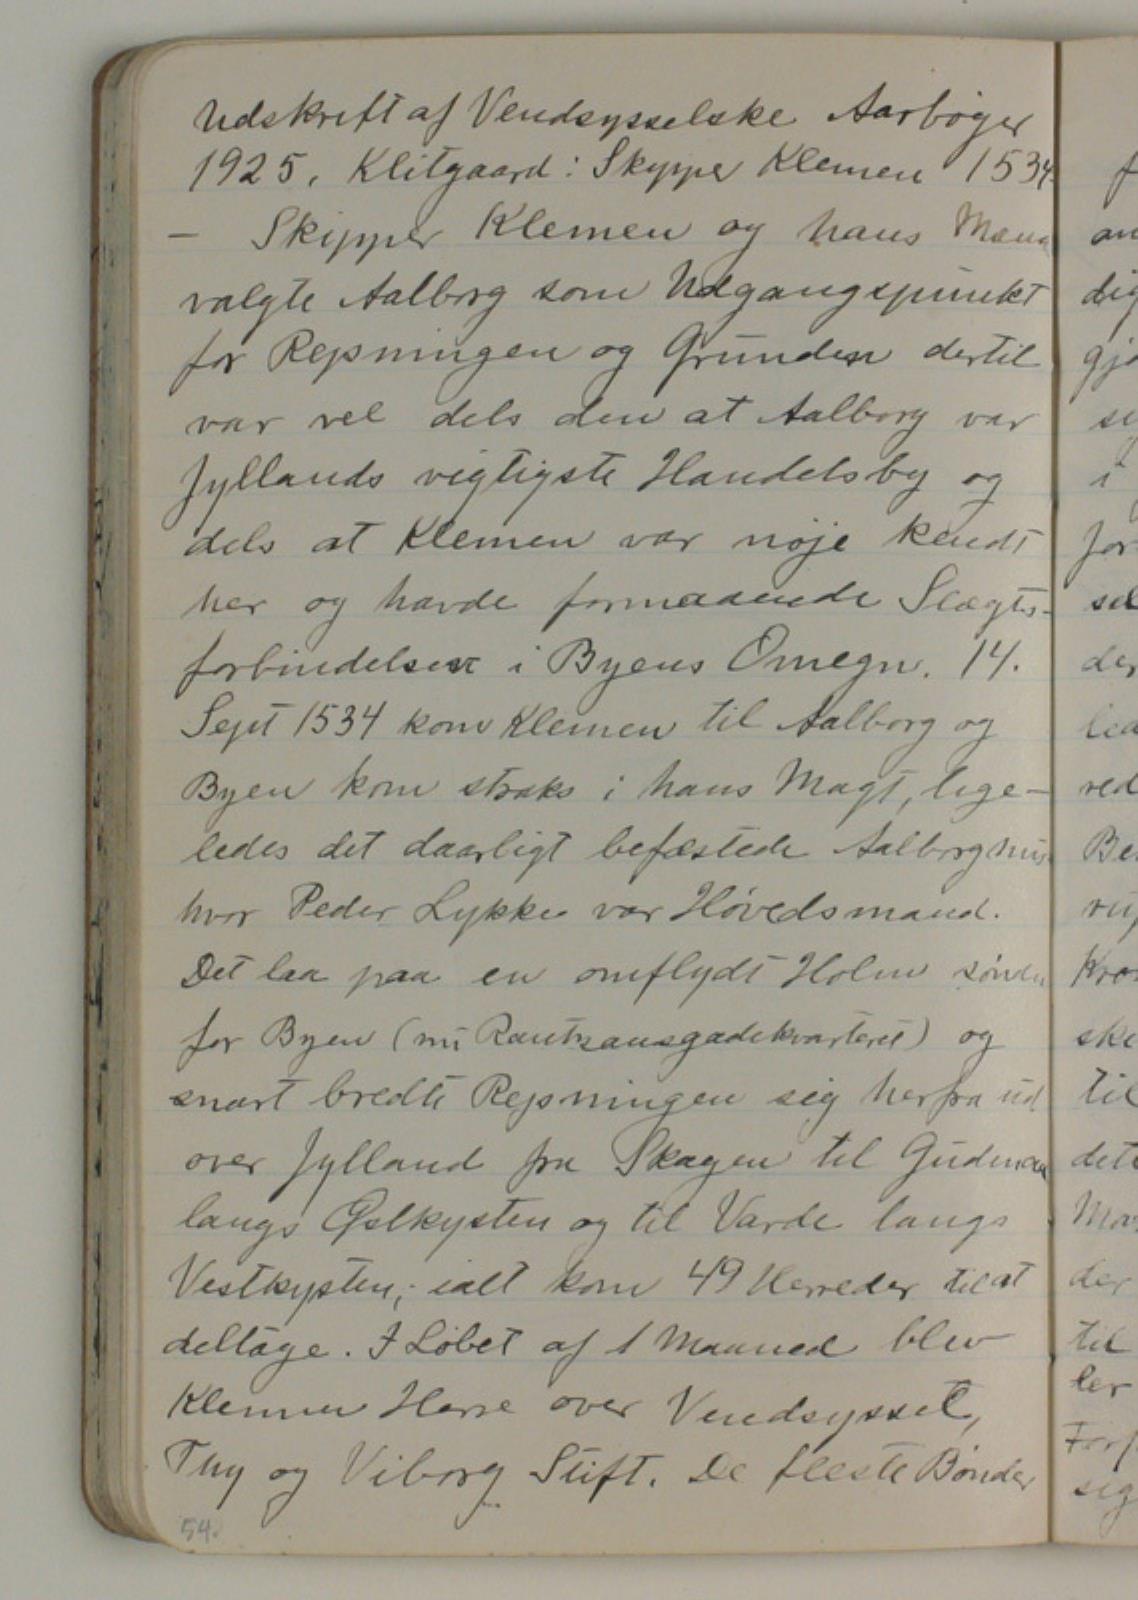 Udskrift af Vendsysselske Aarbøger
1925. Klitgaard: Skipper Klemen 1534.
— Skipper Klemen og hans Mænd
valgte Aalborg som Udgangspunkt
for Rejsningen og Grunden dertil
var vel dels den at Aalborg var
Jyllands vigtigste Handelsby og
dels at Klemen var nøje kendt
her og havde formaaende Slægts-
forbindelser i Byens Omegn. 14.
Sept 1534 kom Klemen til Aalborg og
Byen kom straks i hans Magt, lige-
ledes det daarligt befæstede Aalborghus
hvor Peder Lykke var Høvedsmand.
Det laa paa en omflydt Holm sønden
for Byen (nu Rantzausgadekvarteret) og
snart bredte Rejsningen sig herfra ud
over Jylland fra Skagen til Gudenaa
langs Østkysten og til Varde langs
Vestkysten; ialt kom 49 Herreder til at
deltage. I Løbet af 1 Maaned blev
Klemen Herre over Vendsyssel,
Thy og Viborg Stift. De fleste Bønder
54.